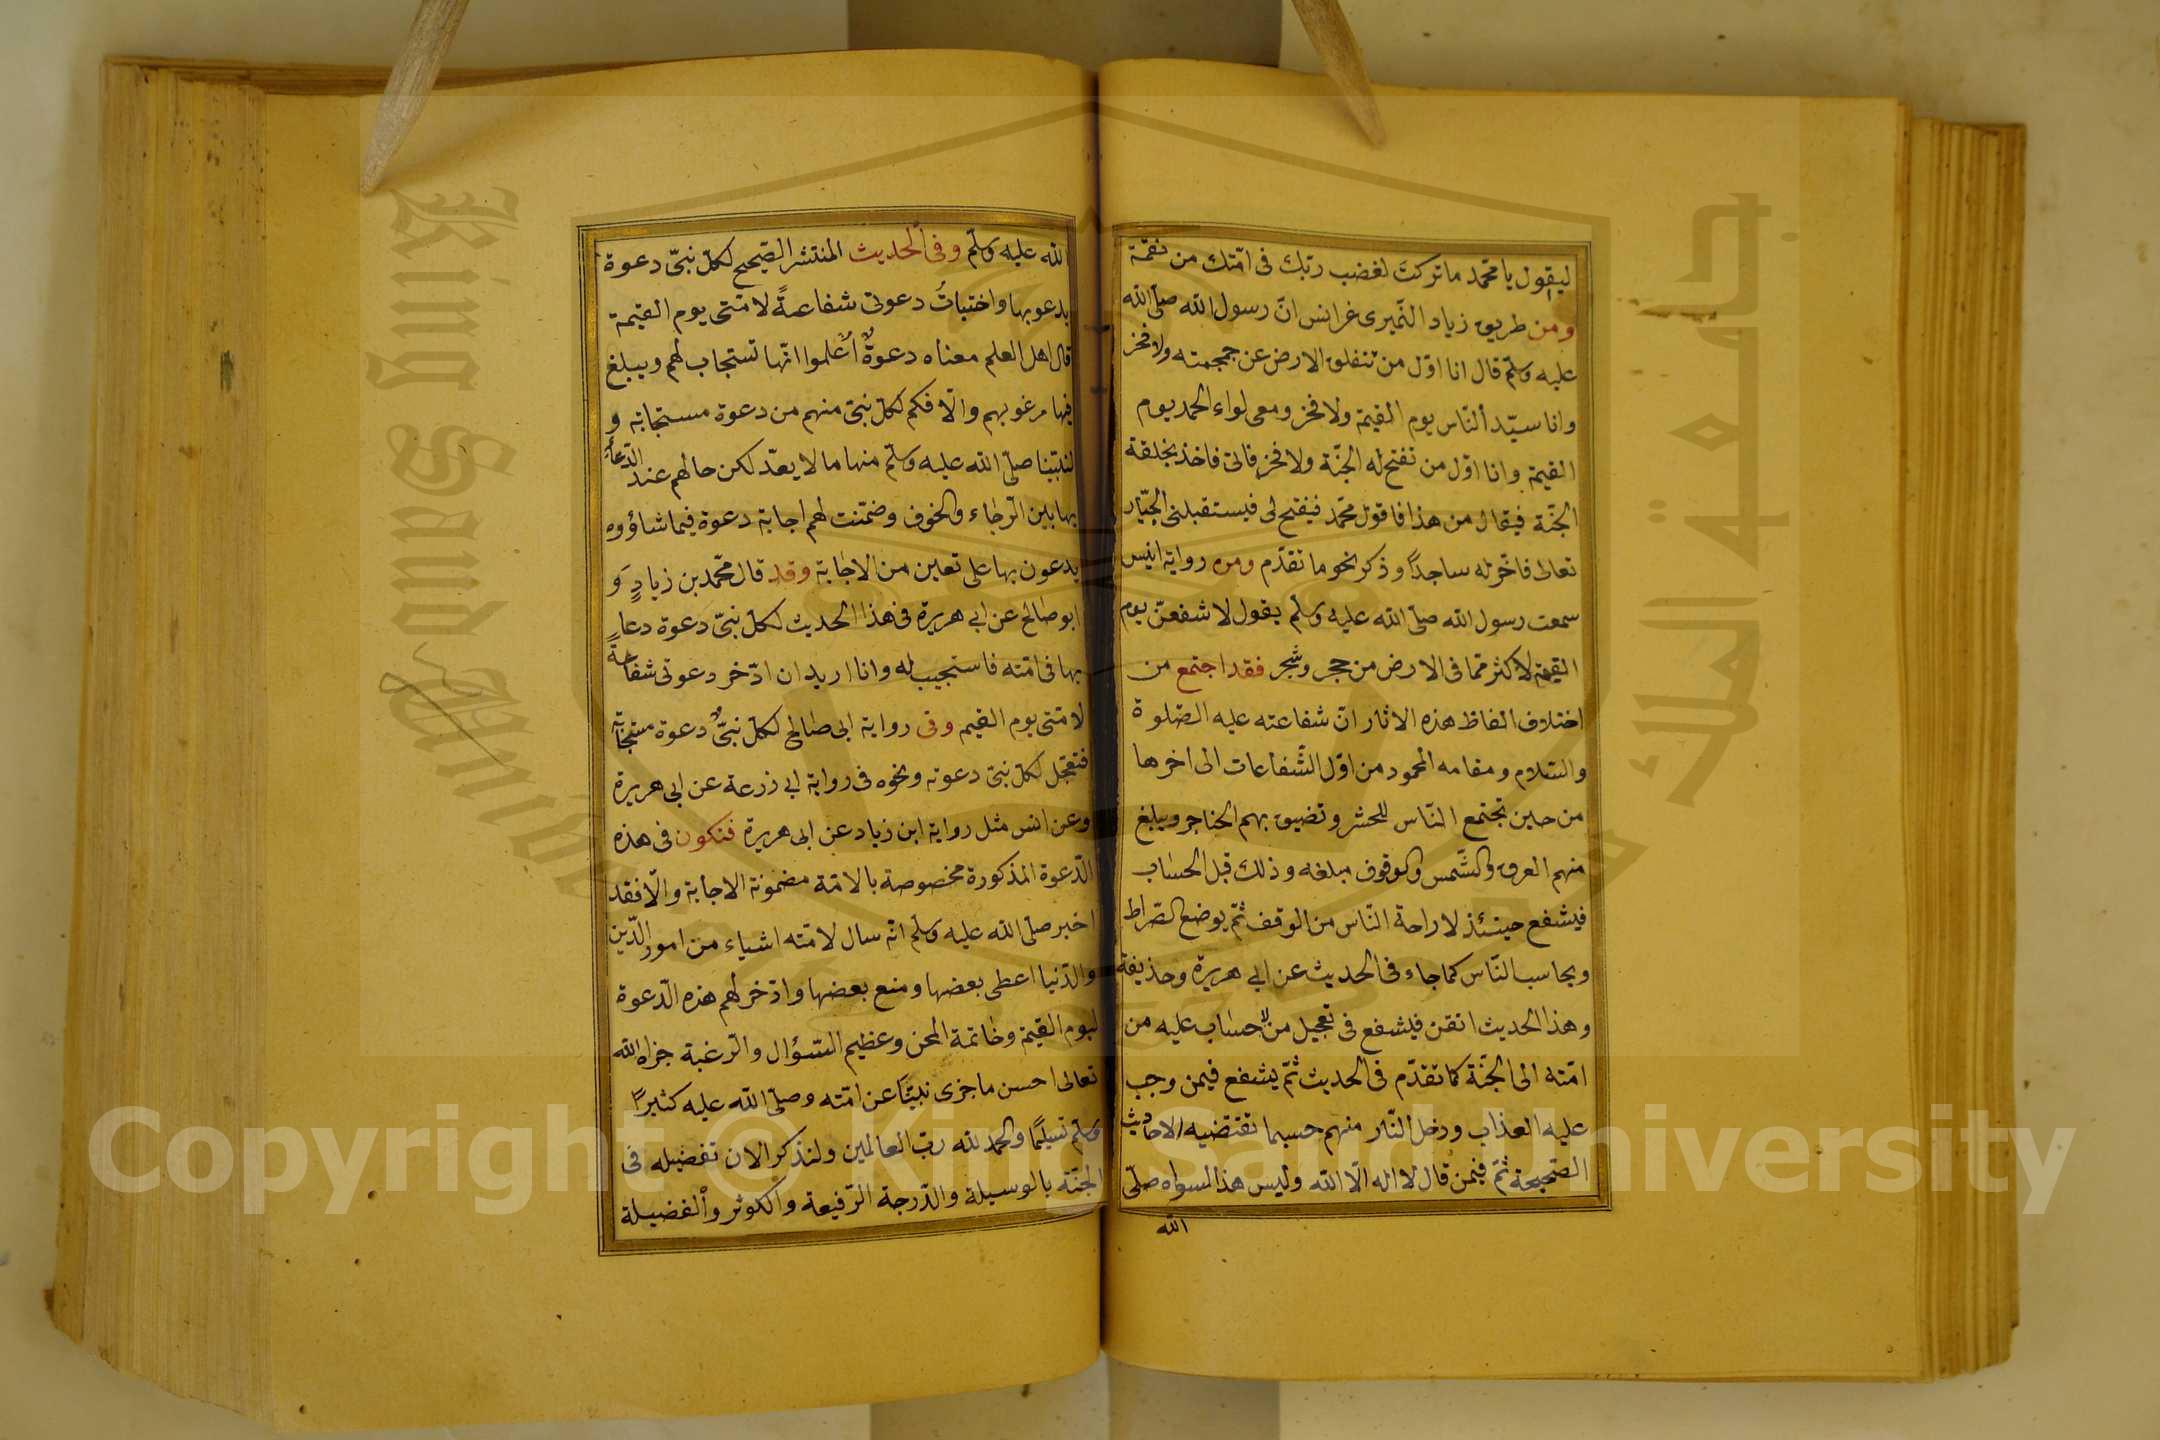 ليقول يا محمد ما تركت لغضب ربك فى امّتك من نقمة
ومن طريق زياد النّميرى عن انس انّ رسول الله صلّى الله
عليه وسلّم قال انا اوّل من تنفلق الارض عن جمجمته ولا فخر
وانا سيّد النّاس يوم القيمة ولا فخر ومعى لواء الحمد يوم
القيمة وانا اوّل من تفتح له الجنّة ولا فخر فاتى فاخذ بحلقة
الجنّة فيقال من هذا فاقول محمّد فيفتح لى فيستقبلنى الجبّار
تعالى فاخرّ له ساجداً وذكر نحو ما تقدّم ومن رواية انيس
سمعت رسول الله صلّى الله عليه وسلّم يقول لاشفعنّ يوم
القيمة لاكثر ممّا فى الارض من حجر وشجر فقد اجتمع من
اختلاف الفاظ هذه الاثار انّ شفاعته عليه الصّلوة
والسّلام ومقامه المحمود من اوّل الشّفاعات الى اخرها
من حين تجتمع النّاس للحشر وتضيق بهم الحناجر ويبلغ
منهم العرق والشّمس والوقوف مبلغه وذلك قبل الحساب
فيشفع حينئذ لاراحة النّاس من الوقف ثمّ يوضع الصّراط
ويحاسب النّاس كما جاء فى الحديث عن ابى هريرة وحذيفة
وهذا الحديث اتقن فيشفع فى تعجيل من لا حساب عليه من
امّته الى الجنّة كما تقدّم فى الحديث ثمّ يشفع فيمن وجب
عليه العذاب ودخل النّار منهم حسبما تقتضيه الاحاديث
الصّحيحة ثمّ فيمن قال لا اله الّا الله وليس هذا لسواه صلّى
الله
الله عليه وسلّم وفى الحديث المنتشر الصّحيح لكلّ نبىّ دعوة
يدعو بها واختبات دعوتى شفاعةً لامّتى يوم القيمة
قال اهل العلم معناه دعوةٌ اُعْلموا انّها تستجاب لهم ويبلغ
فيها مرغوبهم والّا فكم لكلّ نبىّ منهم من دعوة مستجابة و
لنبيّنا صلّى الله عليه وسلّم منها ما لا يعدّ لكن حالهم عند الدّعاء
بها بين الرّجاء والخوف وضمّنت لهم اجابة دعوة فيما شاؤوه
يدعون بها على تعين من الاجابة وقد قال محمّد بن زيادٍ وَ
ابو صالح عن ابى هريرة فى هذا الحديث لكلّ نبىّ دعوة دعا
بها فى امّته فاستجيب له وانا اريد ان ادّخر دعوتى شفاعةً
لامّتى يوم القيم وفى رواية ابى صالح لكلّ نبىّ دعوة مستجابة
فتعجّل كلّ نبىّ دعوته ونحوه فى رواية ابى زرعة عن ابى هريرة
وعن انس مثل رواية ابن زياد عن ابى هريرة فتكون فى هذه
الدّعوة المذكورة مخصوصة بالامّة مضمونة الاجابة والّا فقد
اخبر صلّى الله عليه وسلّم انّه سال لامّته اشياء من امور الدّين
والدّنيا اعطى بعضها ومنع بعضها وادّخر لهم هذه الدّعوة
ليوم القيمة وخاتمة المحن وعظيم السّؤال والرّغبة جزاه الله
تعالى احسن ما جزى نبيّا عن امّته وصلّى الله عليه كثيراً
وسلّم تسليمًا والحمد لله ربّ العالمين ولنذكر الان تفضيله فى
الجنّة بالوسيلة والدّرجة الرّفيعة والكوثر والفضيلة
King Saud University
جامعة الملك سعود
Copyright © King Saud University